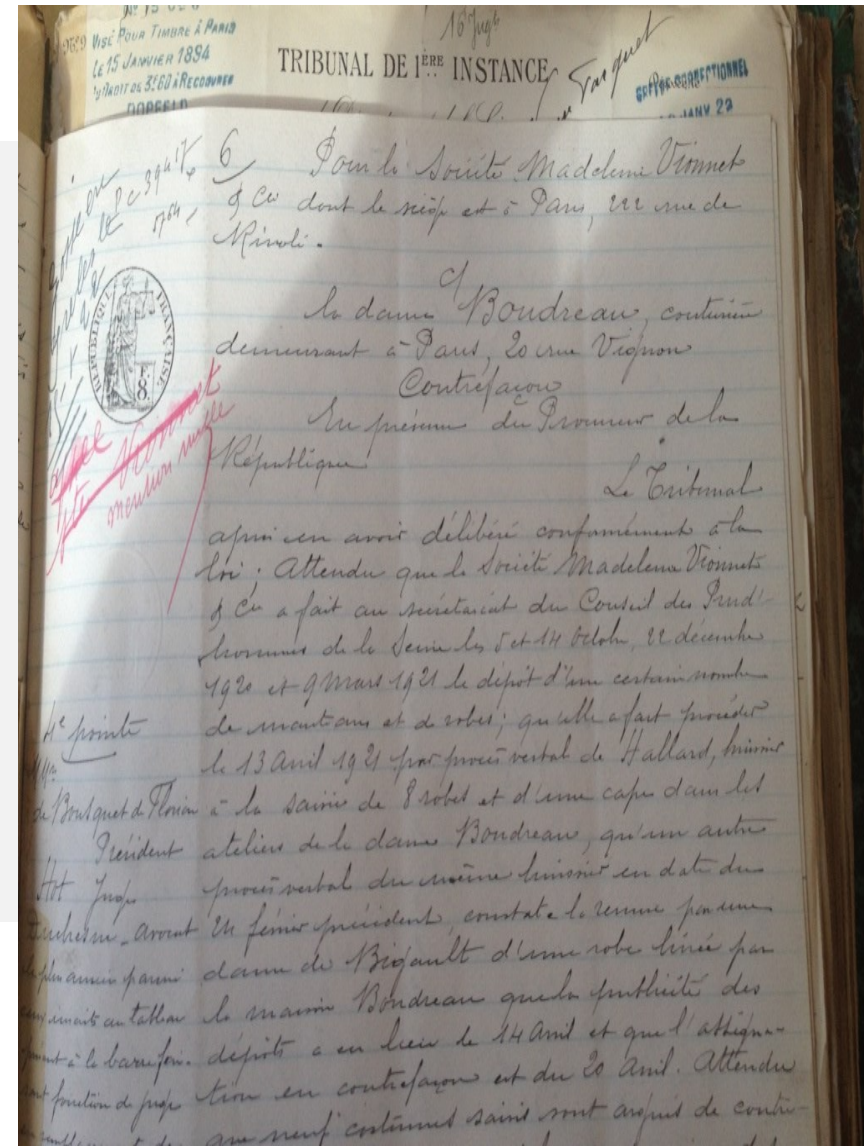 VISÉ POUR TIMBRE À PARIS
LE 15 JANVIER 1894
DROIT DE 3F60 À RECOUVRER
TRIBUNAL DE 1ÈRE INSTANCE
GREFFE CORRECTIONNEL
6 Pour la Société Madeleine Vionnet
& Cie dont le siège est à Paris, 222 rue de
Rivoli.
c/
la dame Boudreau, couturière
demeurant à Paris, 20 rue Vignon
Contrefaçon
En présence du Procureur de la
République
Le Tribunal
après en avoir délibéré conformément à la
loi; Attendu que la Société Madeleine Vionnet
& Cie a fait au secrétariat du Conseil des Prud'
hommes de la Seine les 5 et 14 Octobre, 22 décembre
1920 et 9 Mars 1921 le dépôt d'un certain nombre
de manteaux et de robes; qu'elle a fait procéder
le 13 Avril 1921 par procès verbal de Hallard, huissier
à la saisie de 8 robes et d'une cape dans les
ateliers de la dame Boudreau, qu'un autre
procès verbal du même huissier en date du
février précédent, constate la remise par une
dame de Bigault d'une robe livrée par
la maison Boudreau que la publicité des
dépôts a eu lieu le 14 Avril et que l'assigna-
tion en contrefaçon est du 20 Avril. Attendu
que neuf costumes saisis sont argués de contre-
RÉPUBLIQUE FRANÇAISE
F.
8
mention nulle
4e pointe
MM.
de Bousquet de Florian
Président
Hot Juge
Duchesne, avocat
le plus ancien parmi
ceux inscrits au tableau